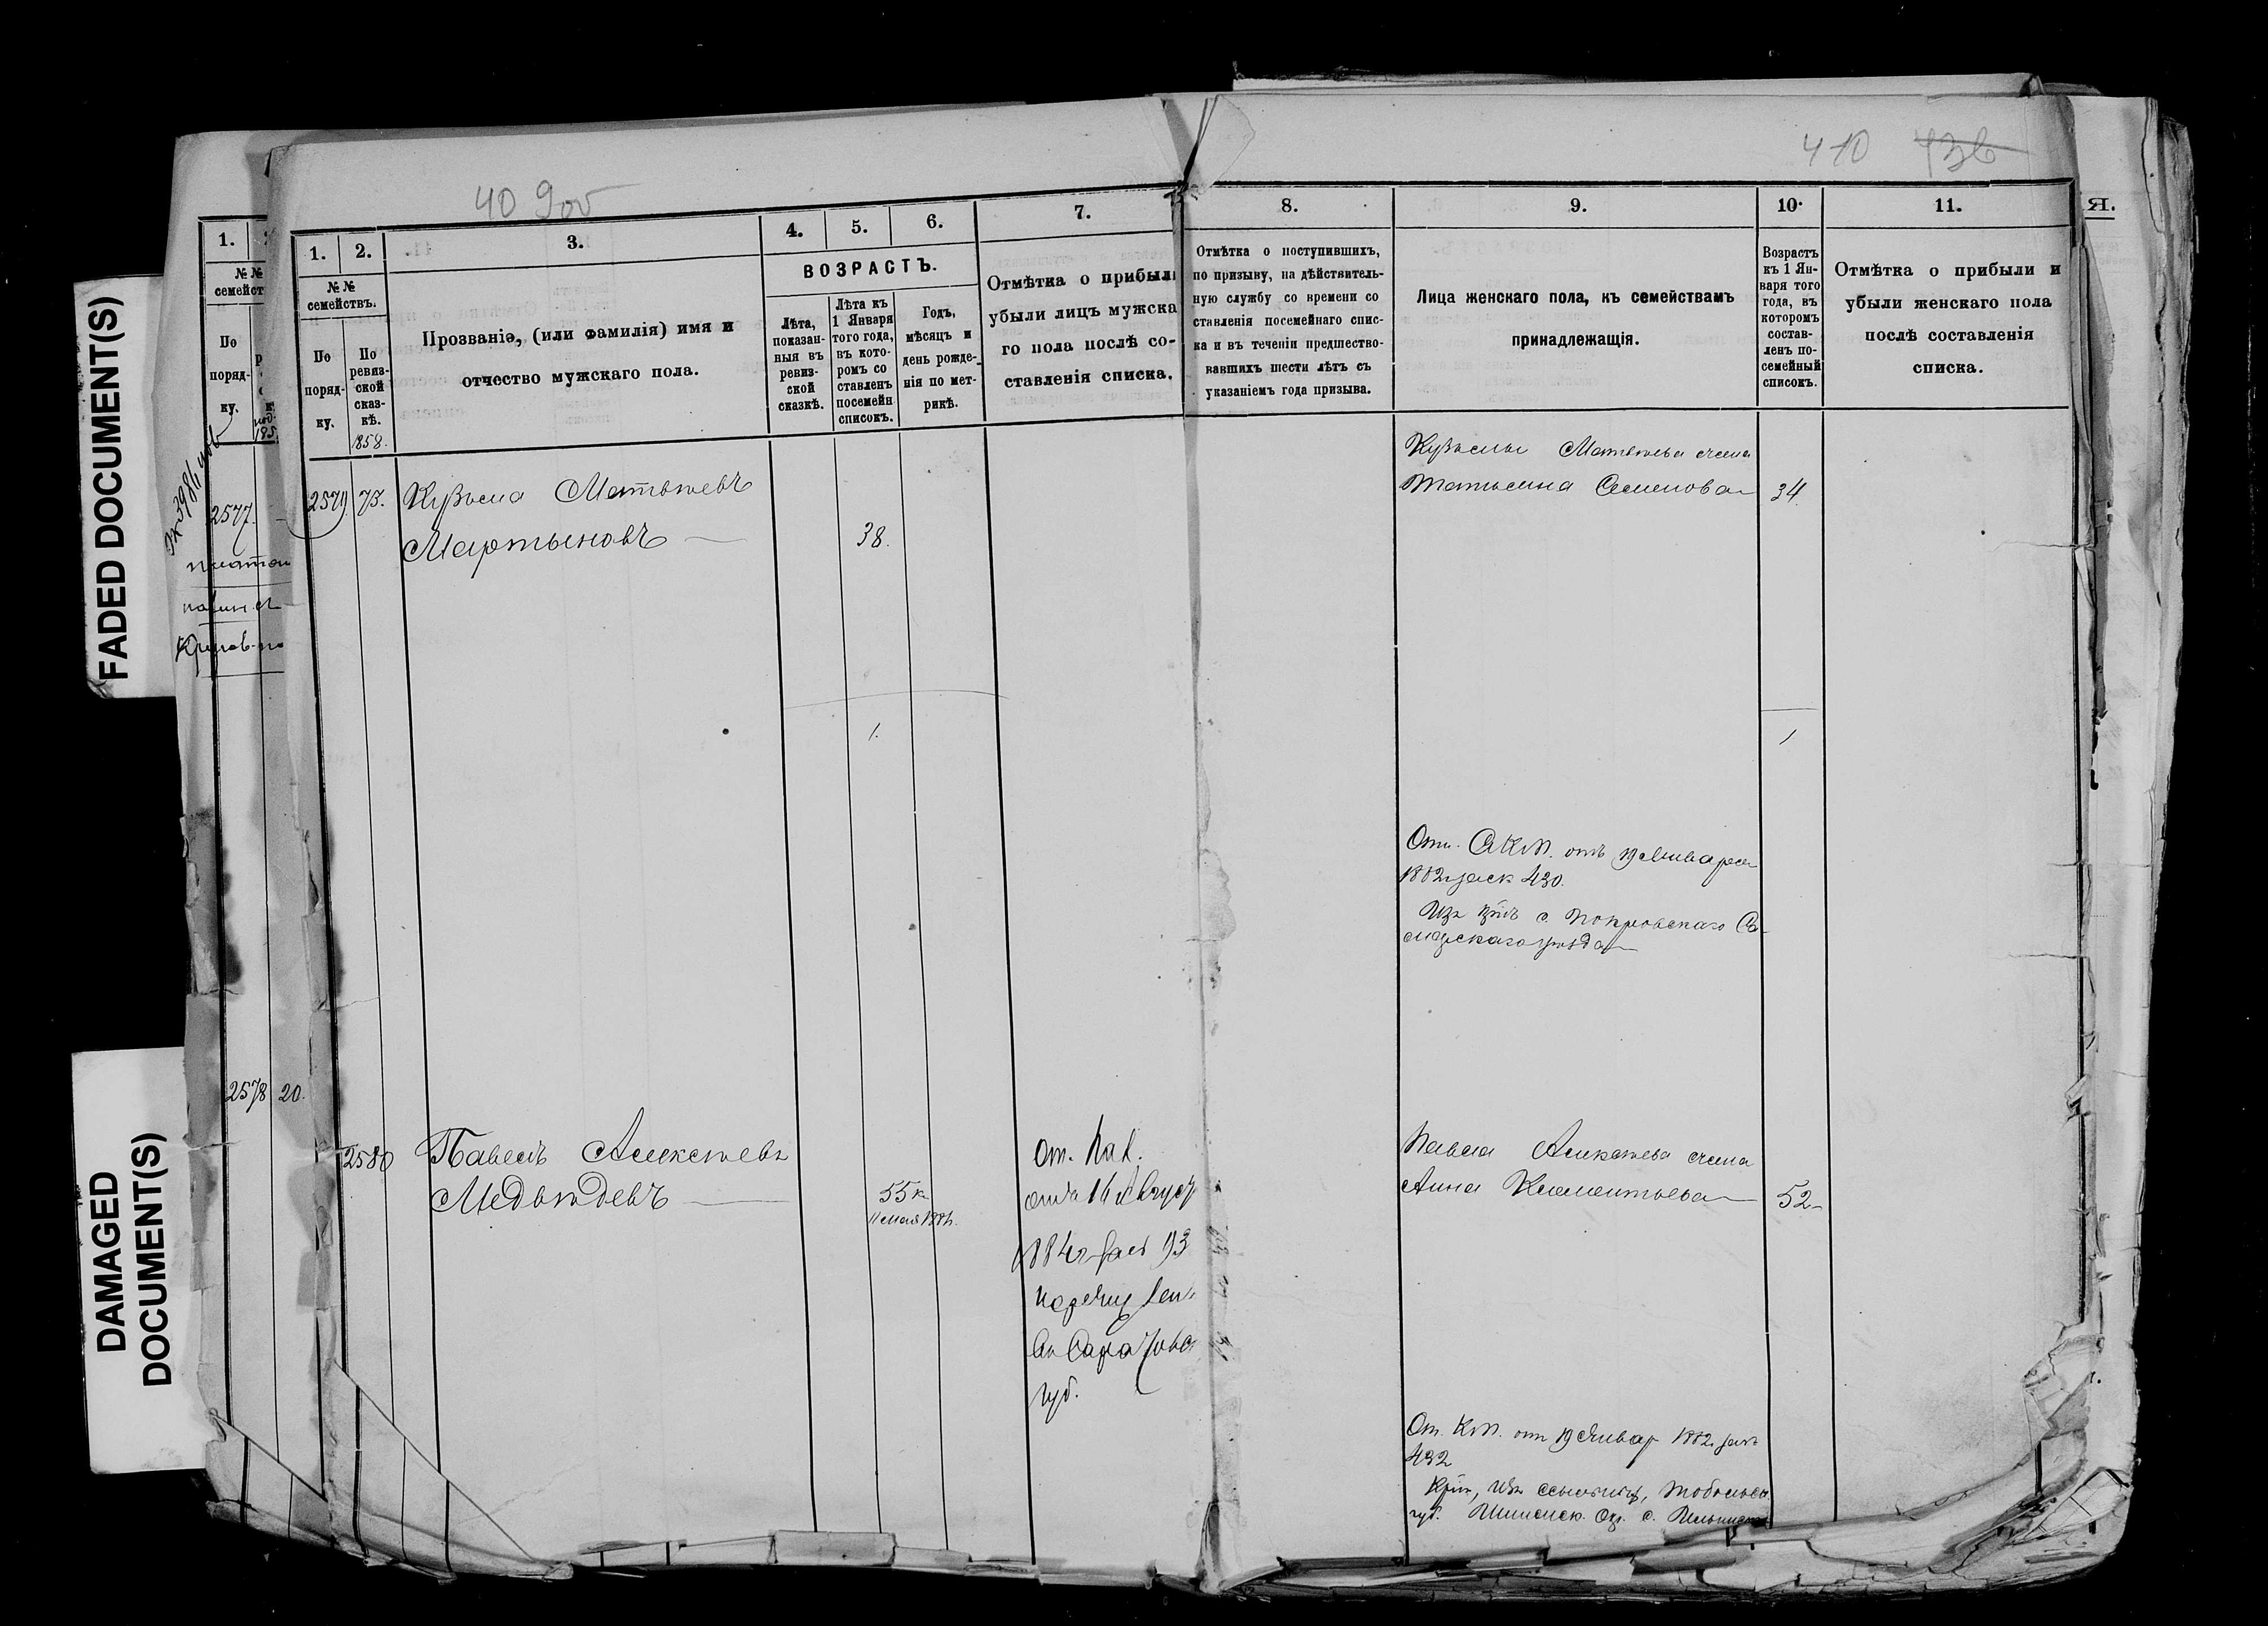 FADED DOCUMENT(S)
DAMAGED
DOCUMENT(S)
409 об
410 436
1.
№ №
семейст
По
поряд-
ку.
2577.
2578 20.
1. 2. 3. 4. 5. 6. 7.
№ №
семействъ.
По
поряд-
ку.
По
ревиз-
ской
сказ-
кѣ.
1858.
Прозваніе, (или фамилія) имя и
отчество мужскаго пола.
ВОЗРАСТЪ.
Лѣта,
показан-
ныя въ
ревиз-
ской
сказкѣ.
Лѣта къ
1 Января
того года,
въ кото-
ромъ со
ставленъ
посемейн
списокъ.
Годъ,
мѣсяцъ и
день рожде-
нія по мет-
рикѣ.
Отмѣтка о прибыли
убыли лицъ мужска
го пола послѣ со-
ставленія списка.
8. 9. 10. 11.
Отмѣтка о поступившихъ,
по призыву, на дѣйствитель-
ную службу со времени со
ставленія посемейнаго спис-
ка и въ теченіи предшество-
вавшихъ шести лѣтъ съ
указаніемъ года призыва.
Лица женскаго пола, къ семействамъ
принадлежащія.
Возрастъ
къ 1 Ян-
варя того
года, въ
которомъ
состав-
ленъ по-
семейный
списокъ.
Отмѣтка о прибыли и
убыли женскаго пола
послѣ составленія
списка.
Я.
2579. 75. Кузьма Матвѣевъ
Мартыновъ 38.
1.
Кузьмы Матвѣева жена
Татьяна Семенова 34.
1
От. СКП. отъ 19 Января
1882 г за № 430.
Изъ кр. с. Покровскаго Са-
марскаго уѣзда
2580 Павелъ Алексѣевъ
Медвѣдевъ 55
11 мая 1884.
От. Каз.
отъ 16 Август
1884 г за № 193
Саратовс
губ.
Павла Алексѣева жена
Анна Климентьева 52
От. КП. от 19 Январ 1882 за №
432
Крт, изъ ссыльныхъ, Тобольск.
губ. Ишимск. Окр. с.